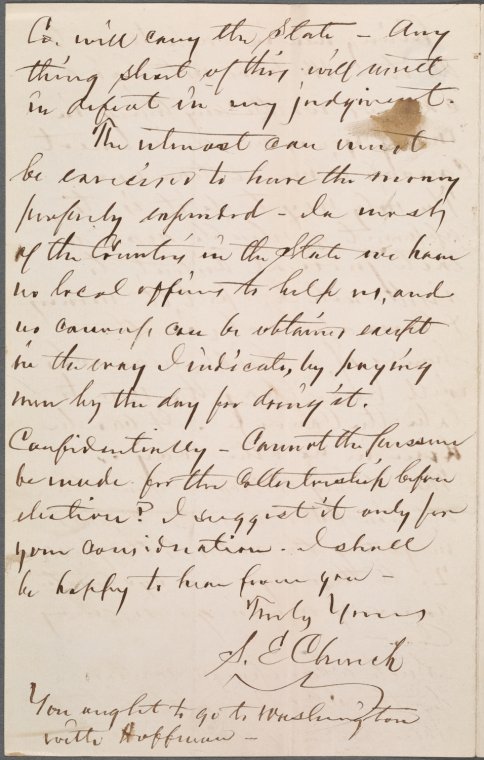 Co. will carry the State – Any
thing short of this will result
in defeat in my judgment.
The utmost care must
be exercised to have the money
properly expended – In most
of the Country in the State we have
no local offices to help us, and
no canvass can be obtained except
in the way I indicate, by paying
men by the day for doing it.
Confidentially – Cannot the pressure
be made for the Collectorship before
election? I suggest it only for
your consideration. I shall
be happy to hear from you –
Truly Yours
S. E Church
You ought to go to Washington
with Hoffman –